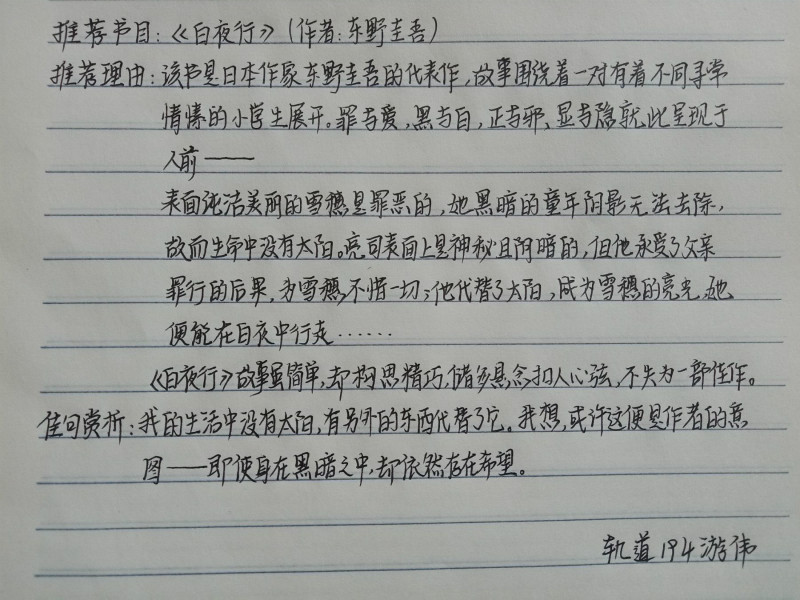 推荐书目：《白夜行》（作者：东野圭吾）
推荐理由：该书是日本作家东野圭吾的代表作，故事围绕着一对有着不同寻常
情愫的小学生展开。罪与爱，黑与白，正与邪、显与隐就此呈现于
人前——
表面纯洁美丽的雪穗是罪恶的，她黑暗的童年阴影无法去除，
故而生命中没有太阳。亮司表面上是神秘且阴暗的，但他承受了父亲
罪行的后果，为雪穗不惜一切；他代替了太阳，成为雪穗的亮光，她
便能在白夜中行走……
《白夜行》故事虽简单，却构思精巧，诸多悬念扣人心弦，不失为一部佳作。
佳句赏析：我的生活中没有太阳，有另外的东西代替了它。我想，或许这便是作者的意
图——即使身在黑暗之中，却依然存在希望。
轨道194游伟